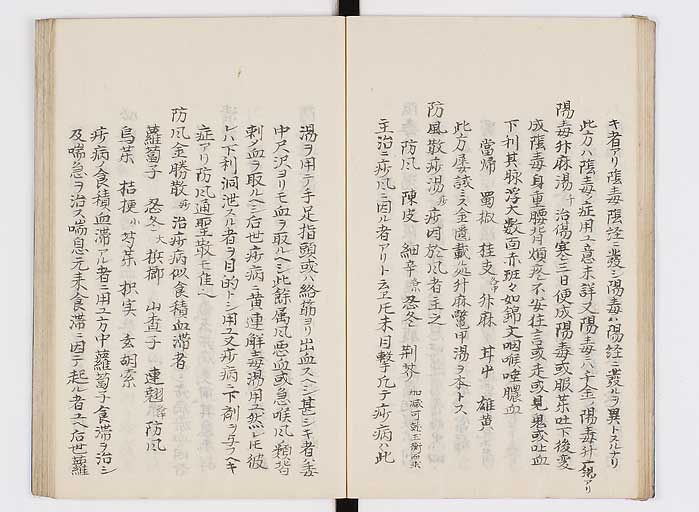 キ者アリ陰毒陰證ニ發シ陽毒ハ陽證ニ發ルヲ異トスルナリ
此方ハ陰毒ノ症用ユ意未詳又陽毒ニハ千金ノ陽毒升麻湯アリ
陽毒升麻湯 治傷寒三日便成陽毒或服藥吐下後變
成陰毒身重腰背煩疼不安狂言或走或見鬼或吐血
下利其脉浮大數面赤斑々如錦文咽喉唾膿血
當帰 蜀椒 桂支 升麻 甘中 雄黄
此方屡試ミス金匱載処升麻鼈甲湯ヲ本トス
防風散痧湯 痧因於風者主之
防風 陳皮 細辛 忍冬 荆芥
主治ニ痧風ニ因ル者アリト云ヱ𪜈未目撃セズ凡テ痧病ハ此
湯ヲ用テ手足指頭或ハ絡筋ヨリ出血スヘシ甚シキ者ハ委
中尺沢ヨリモ血ヲ取ルヘシ此餘属風悪血或急喉風ノ類皆
刺ノ血ヲ取ルヘシ后世痧病ニ黄連解毒湯用ユ然レ𪜈彼
ハ下利洞泄スル者ヲ目的トシ用ユ又痧病ニ下剤ヲ与フヘキ
症アリ防風通聖散モ佳ヘ
防風金勝散 治痧病似食積血滞者
蘿蔔子 忍冬大 梹榔 山査子 連翹 防風
烏藥 桔梗小 芎藥 枳実 玄胡索
痧病ノ食積血滞アル者ニ用ユ方中蘿蔔子食滞ヲ治シ
及喘急ヲ治ス喘息元来食滞ニ因テ起ル者ユヘ后世蘿